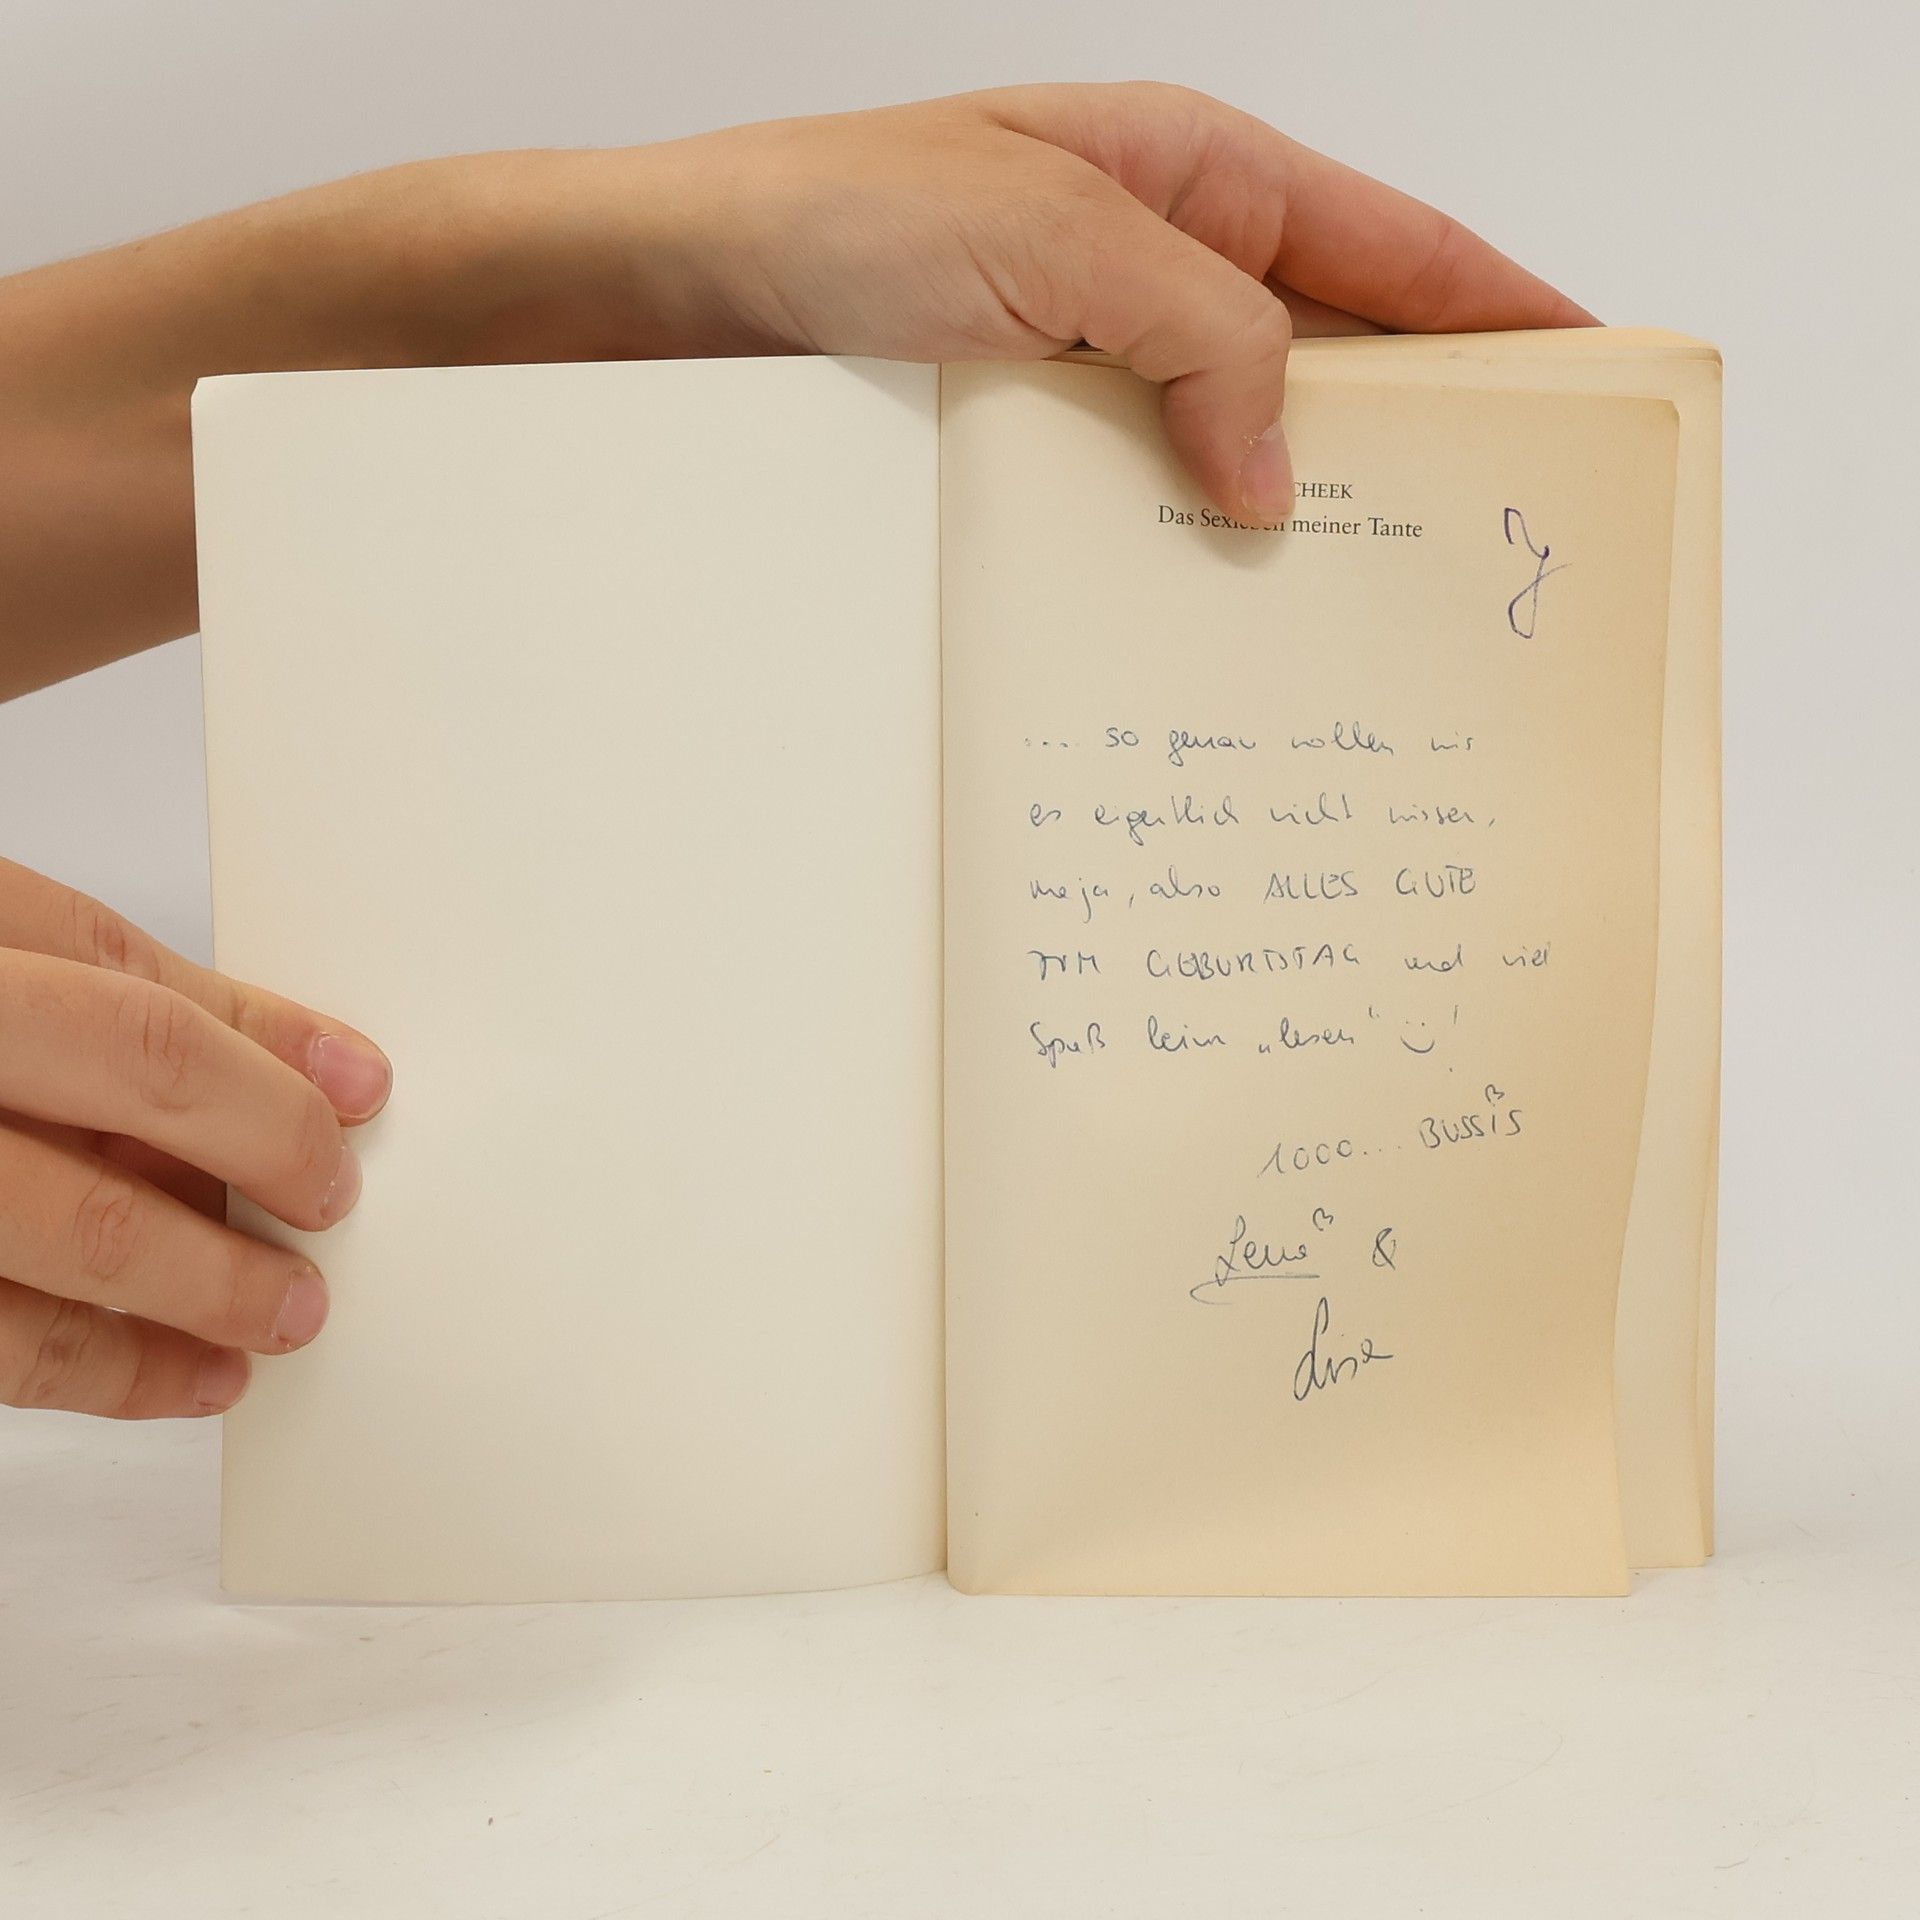 CHEEK
Das Sexleben meiner Tante
... so genau wollen wir
es eigentlich nicht wissen,
naja, also ALLES GUTE
ZUM GEBURTSTAG und viel
Spaß beim „lesen“ :)!
1000... BUSSIS
Lena &
Lisa